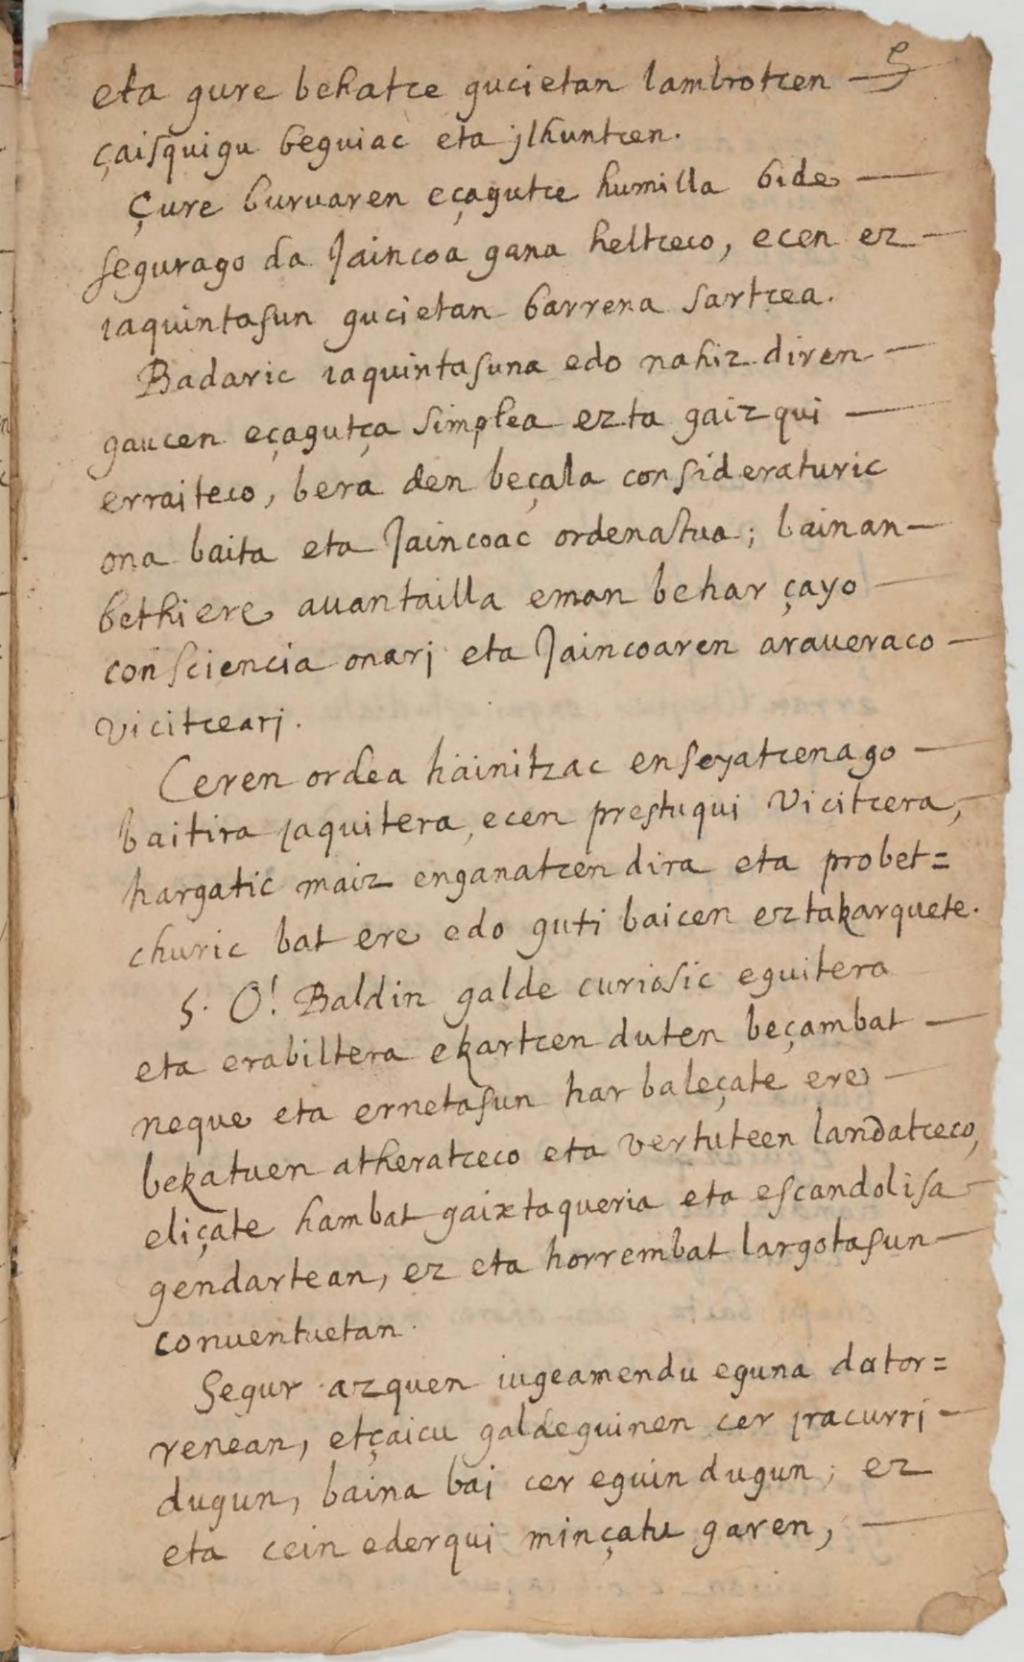 5
eta gure bekatce gucietan lambrotcen —
çaisquigu beguiac eta jlhuntcen.
Çure buruaren eçagutce humilla bide —
segurago da Jaincoa gana heltceco, ecen ez —
iaquintasun gucietan barrena sartcea.
Badaric iaquintasuna edo nahiz diren —
gaucen eçagutça simplea ezta gaizqui —
erraiteco, bera den beçala consideraturic
ona baita eta Jaincoac ordenatua; bainan —
bethiere auantailla eman behar çayo —
consciencia onarj eta Jaincoaren araueraco —
vicitcearj.
Ceren ordea hainitzac enseyatcenago —
baitira jaquitera, ecen prestuqui vicitcera,
hargatic maiz enganatcen dira eta probet=
churic bat ere edo guti baicen eztakarquete.
5. O! Baldin galde curiosic eguitera
eta erabiltera ekartcen duten beçambat —
neque eta ernetasun har baleçate ere —
bekatuen atheratceco eta vertuteen landatceco,
eliçate hambat gaixtaqueria eta escandolisa —
gendartean, ez eta horrembat largotasun —
conuentuetan.
Segur azquen iugeamendu eguna dator=
renean, etçaicu galdeguinen cer jracurri —
dugun, baina baj cer eguin dugun; ez
eta cein ederqui minçatu garen, —